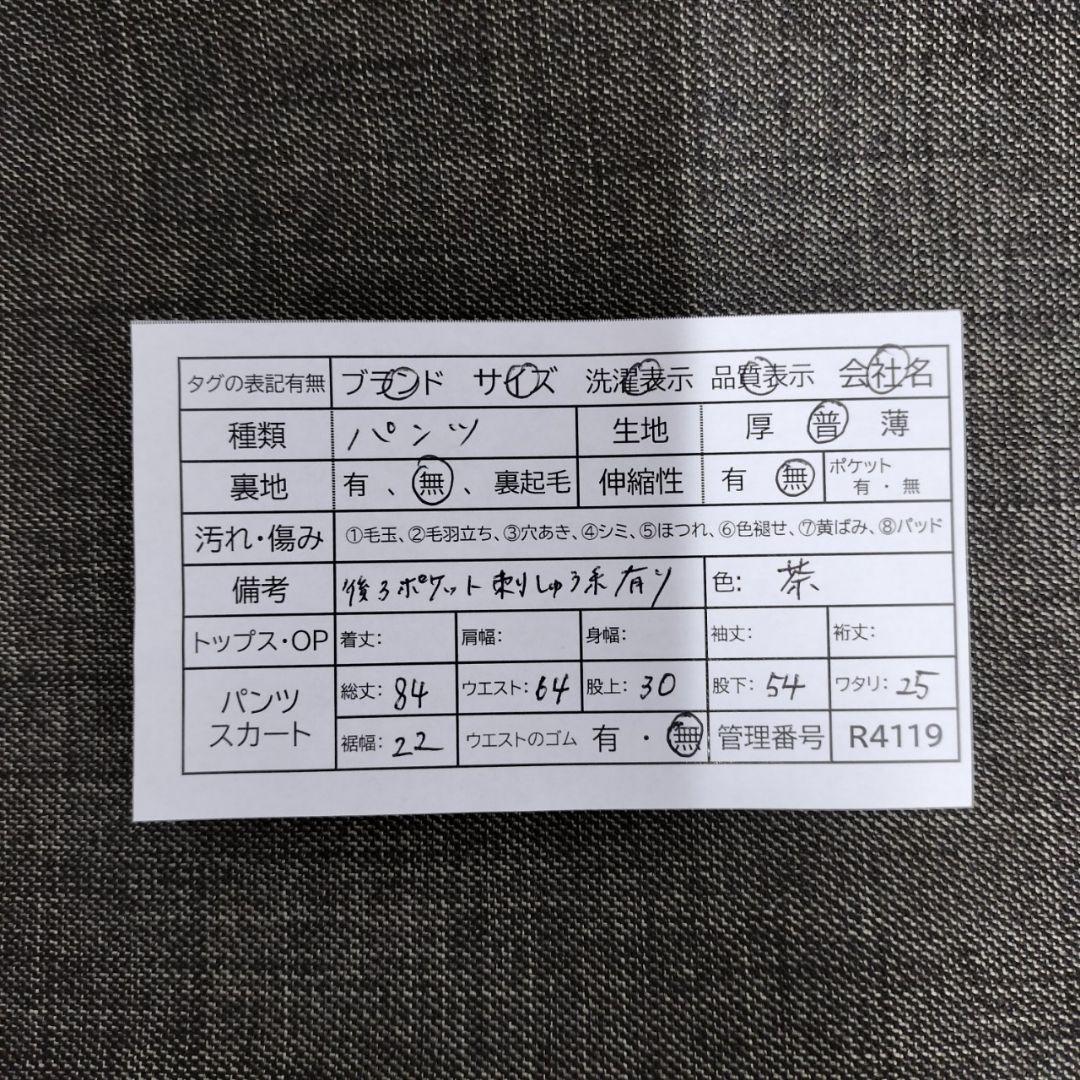 タグの表記有無 ブランド サイズ 洗濯表示 品質表示 会社名
種類 パンツ 生地 厚 普 薄
裏地 有 、 無 、 裏起毛 伸縮性 有 無 ポケット 有 ・ 無
汚れ・傷み ①毛玉、②毛羽立ち、③穴あき、④シミ、⑤ほつれ、⑥色褪せ、⑦黄ばみ、⑧パッド
備考 後ろポケット刺しゅう糸有り 色: 茶
トップス・OP 着丈: 肩幅: 身幅: 袖丈: 裄丈:
パンツ スカート 総丈: 84 ウエスト: 64 股上: 30 股下: 54 ワタリ: 25
裾幅: 22 ウエストのゴム 有 ・ 無 管理番号 R4119